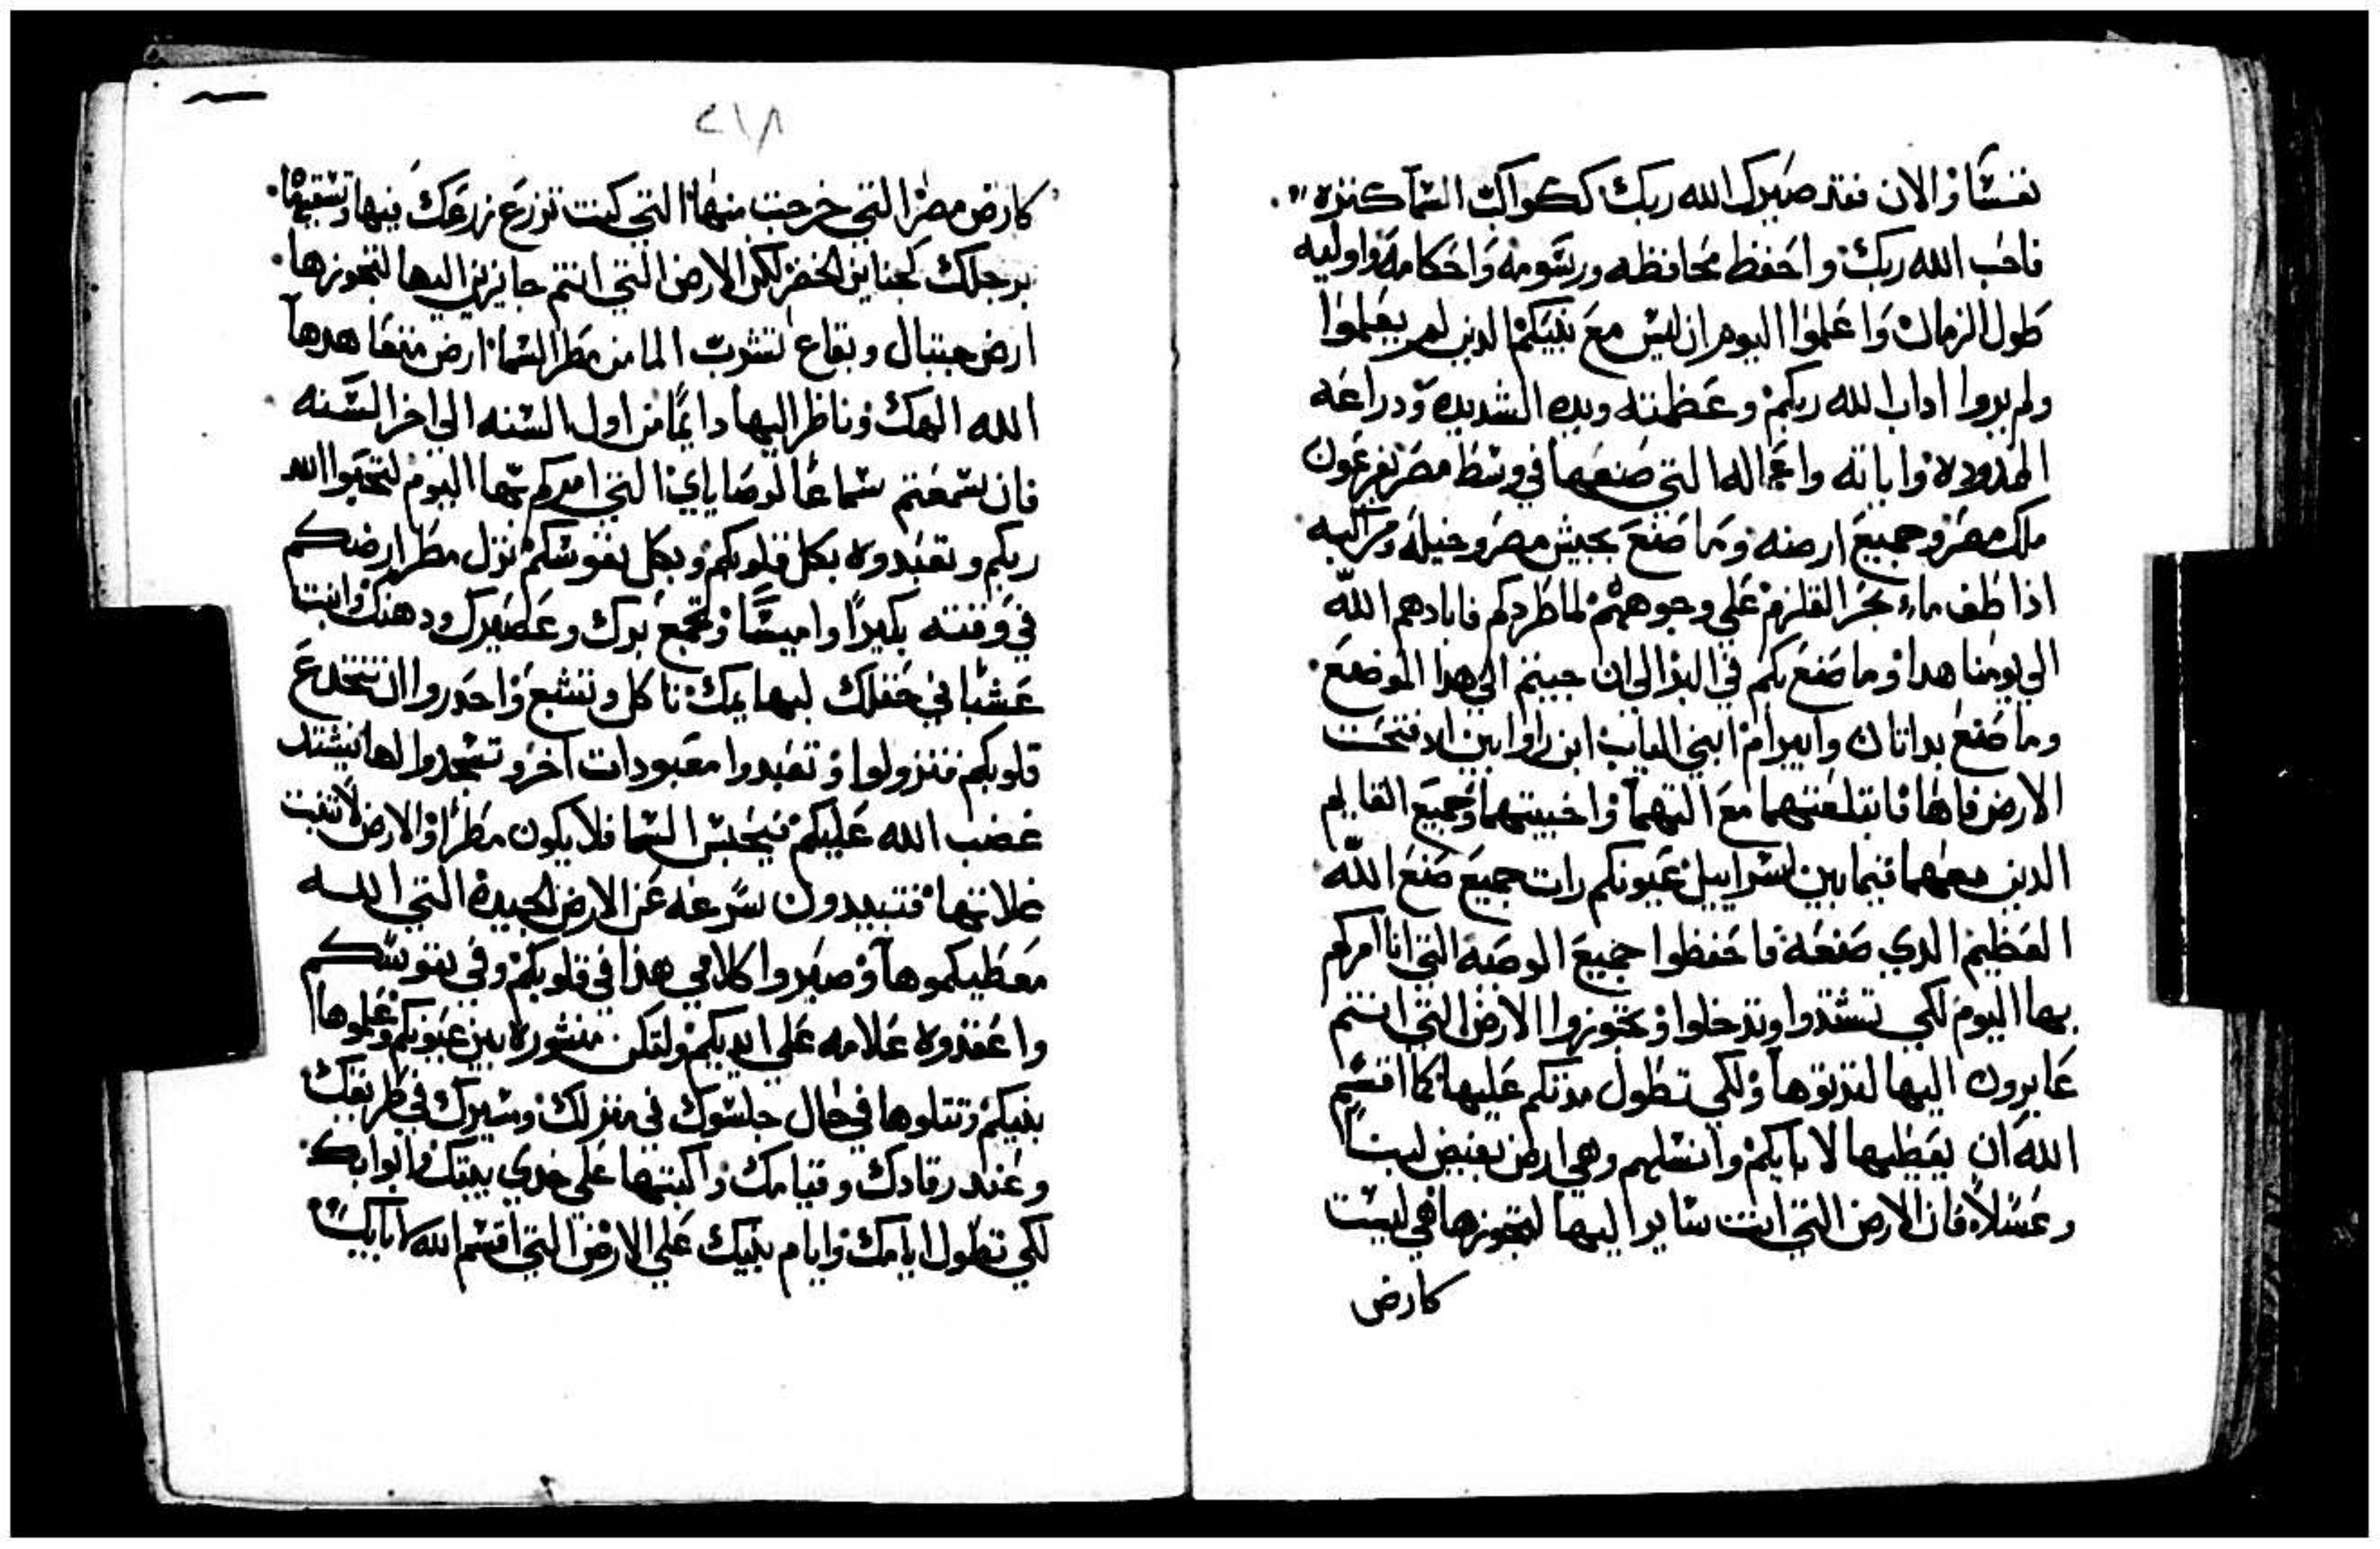 نفسًا والان فقد صيرك الله ربك ككواكب السما كنزه
فاحب الله ربك واحفظ محافظه ورسومه واحكامه واوليه
طول الزمان واعلموا اليوم ان ليس مع بنيكم الدين لم يعلموا
ولم يروا اداب الله ربكم وعظمته ويده الشديده ودراعه
الممدوده واياته واعماله التي صنعها في وسط مصر بفرعون
ملك مصر وجميع ارضه وما صنع بجيش مصر وخيله ومراكبه
اذا طف ماء بحر القلزم علي وجوههم لما طردكم فابادهم الله
الي يومنا هدا وما صنع بكم في البر الي ان جيتم الي هدا الموضع
وما صنع بداتان وابيرام ابني الياب ابن راوابين اد فتحت
الارض فاها فابتلعتهما مع التهما واخبيتهما وجميع القايم
الدين معهما فيما بين اسراييل عيونكم رات جميع صنع الله
العظيم الدي صنعه فاحفظوا جميع الوصيه التي انا امركم
بها اليوم لكي تشتدوا وتدخلوا وتحوزوا الارض التي انتم
عابرون اليها لترثوها ولكي تطول مدتكم عليها كما اقسم
الله ان يعطيها لابايكم وانسلهم وهي ارض تفيض لبنًا
وعسلاً فان الارض التي انت سايرا ليها لتحوزها هي ليست
كارض
٢١٨
كارض مصر التي خرجت منها التي كنت تزرع زرعك فيها وتسقيها
برجلك كجناين الخضر لكن الارض التي انتم جايزين اليها لتحوزها
ارض جبال وبقاع تشرب الما من مطر السما ارض متعاهدها
الله الهك وناظر اليها دايمًا من اول السنه الي اخر السنه
فان سمعتم سماعًا لوصاياي التي امركم بها اليوم لتحبوا الله
ربكم وتعبدوه بكل قلوبكم وبكل نفوسكم نزل مطر ارضكم
في وقته بكيرًا واميسًا وتجمع برك وعصيرك ودهنك وانبت
عشبا في حقلك لبهايمك تاكل وتشبع واحدروا ان تنخدع
قلوبكم فتزولوا وتعبدوا معبودات اخر وتسجدوا لها فيشتد
غضب الله عليكم فيحبس السما فلا يكون مطرًا والارض لا تنبت
غلاتها فتبيدون سرعه عن الارض الجيده التي الله
معطيكموها وصيروا كلامي هذا في قلوبكم وفي نفوسكم
واعقدوه علامه علي ايديكم ولتكن منشوره بين عيونكم وعلموها
بنيكم وتتلوها في حال جلوسك في منزلك وسيرك في طريقك
وعند رقادك وقيامك واكتبها علي خدي بيتك وابوابك
لكي تطول ايامك وايام بنيك علي الارض التي اقسم الله لابايك